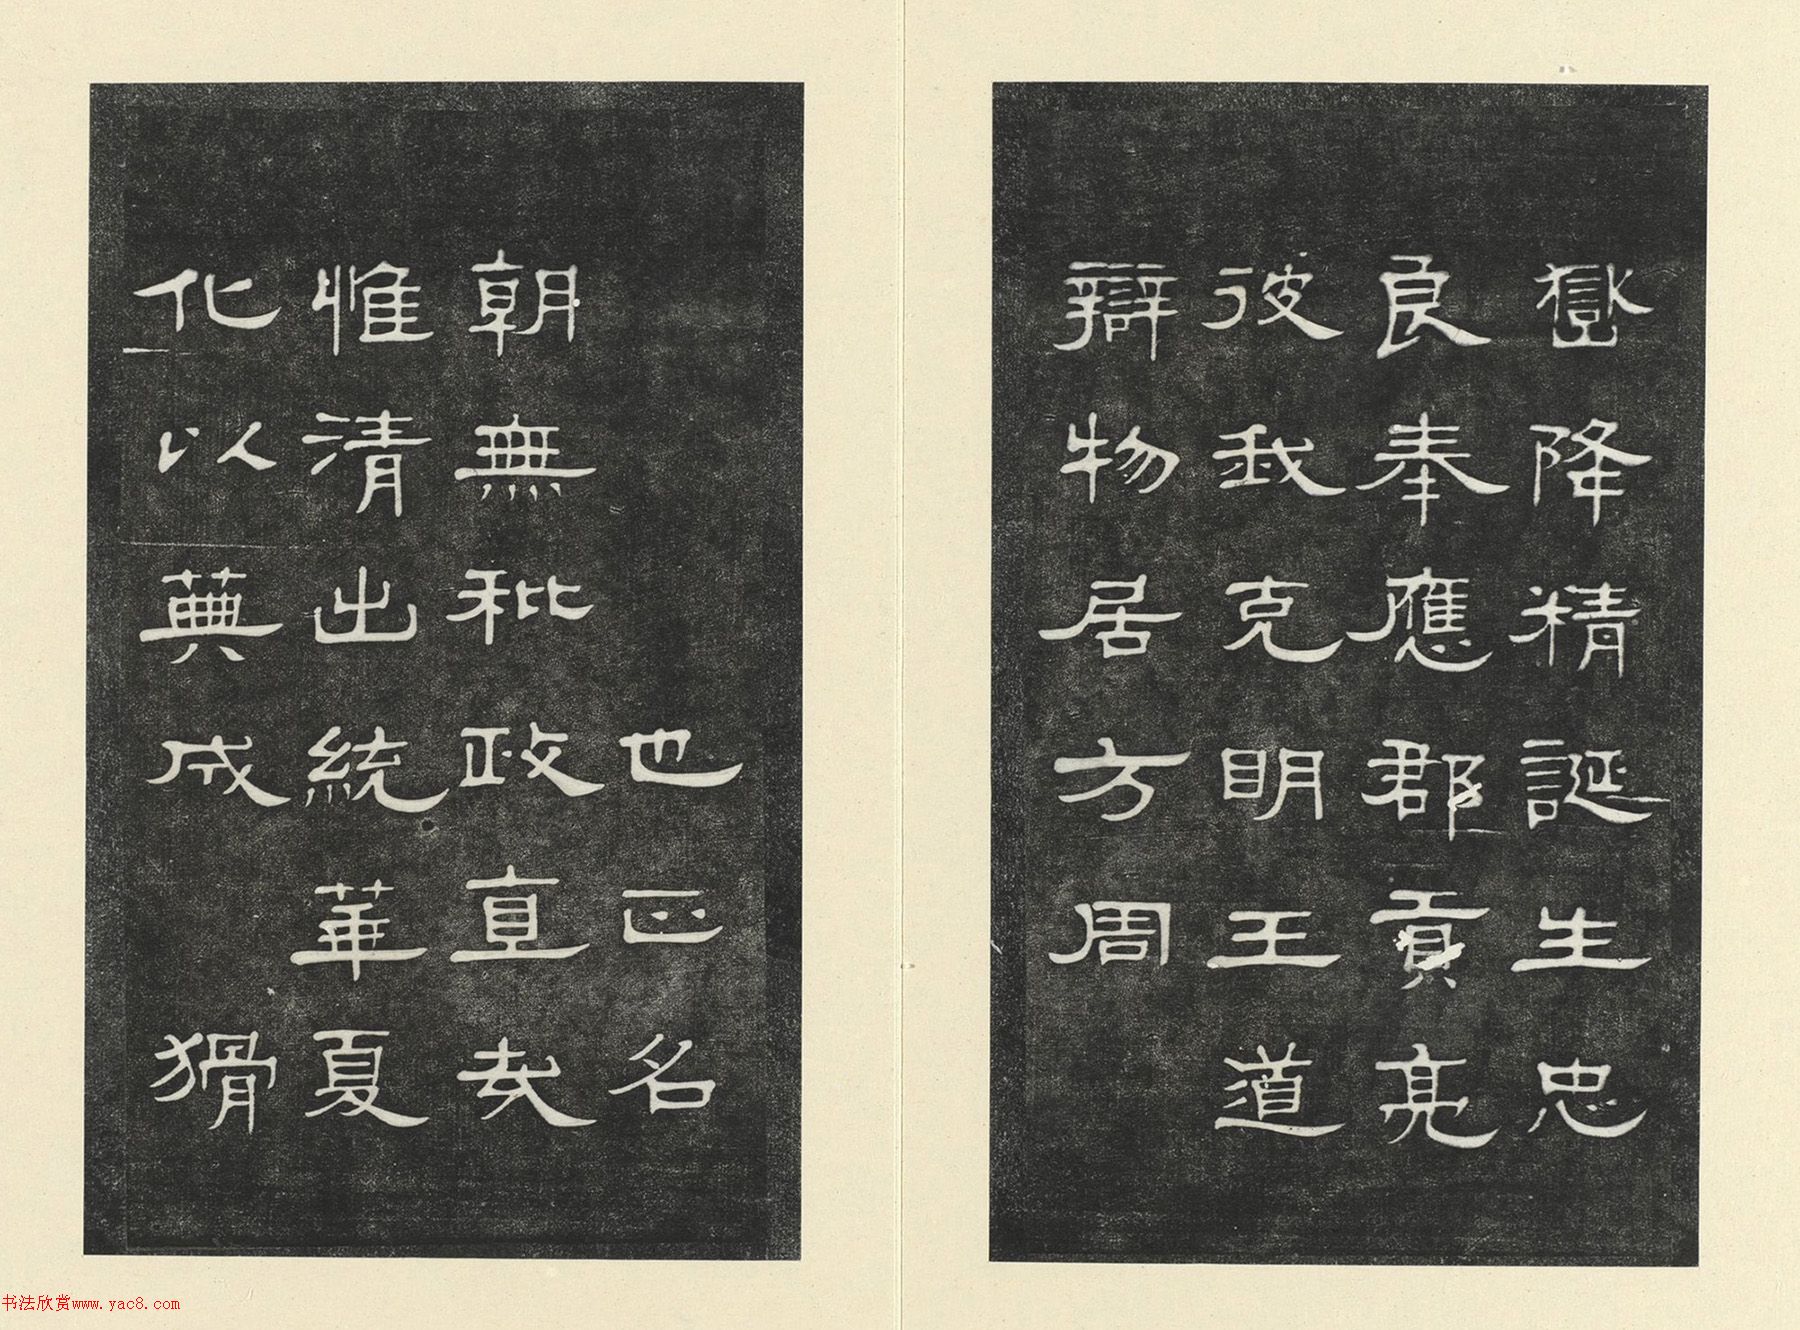 嶽降精誕生忠
良奉應郡貢亮
彼我克明王道
辯物居方周
也正名
朝無秕政直哉
惟清出統華夏
化以典成猾
书法欣赏www.yac8.com